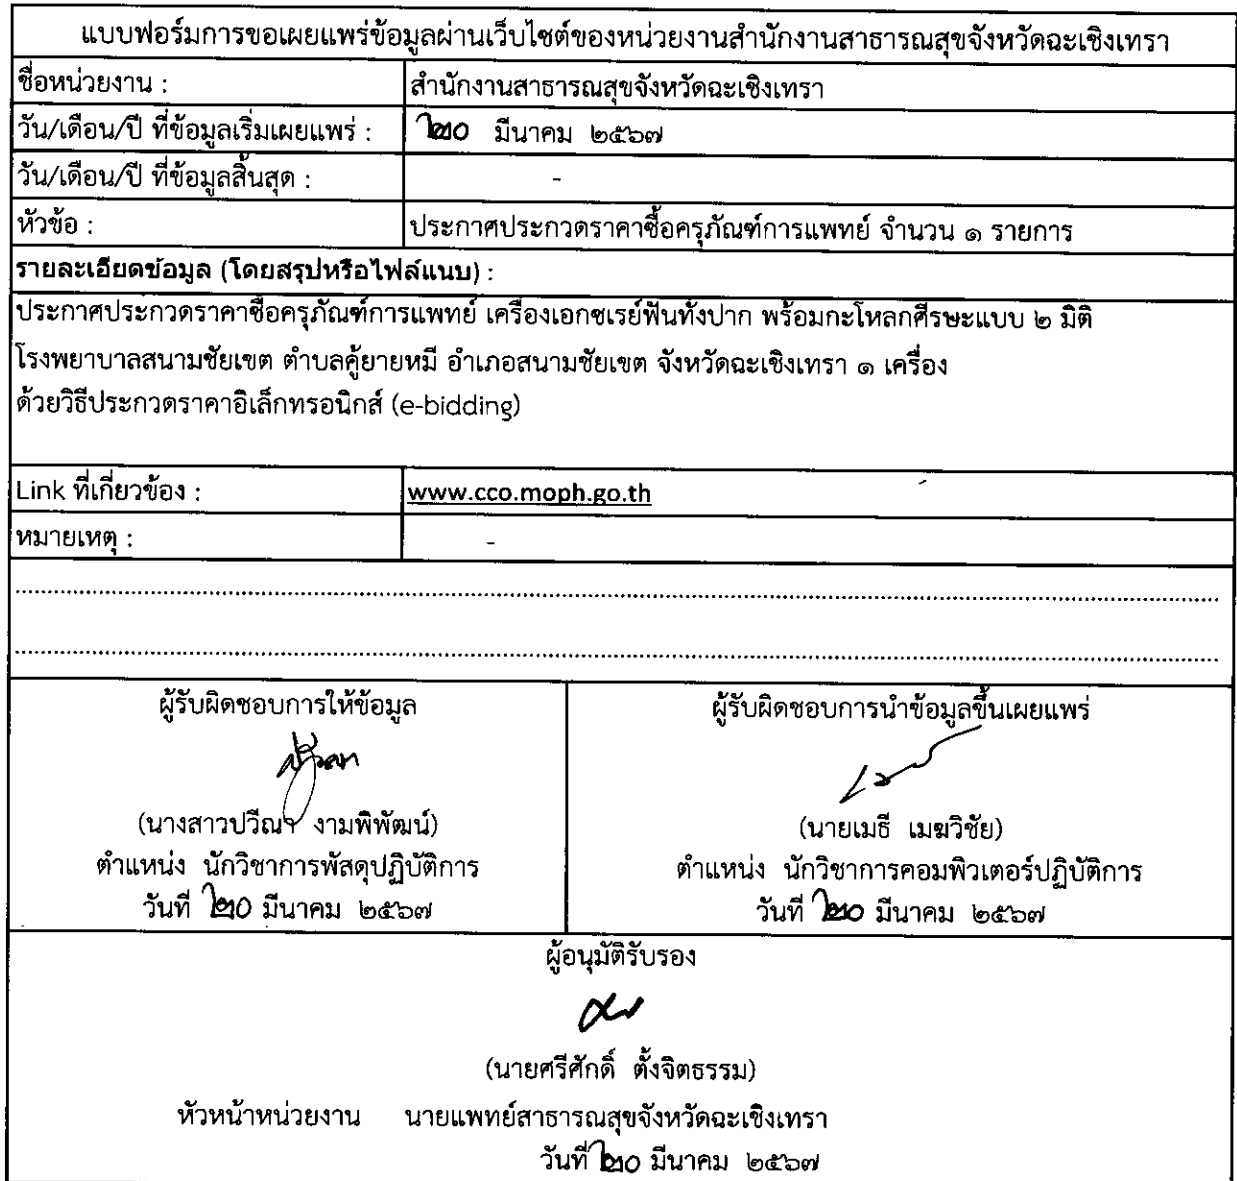 แบบฟอร์มการขอเผยแพร่ข้อมูลผ่านเว็บไซต์ของหน่วยงานสำนักงานสาธารณสุขจังหวัดฉะเชิงเทรา
ชื่อหน่วยงาน : สำนักงานสาธารณสุขจังหวัดฉะเชิงเทรา
วัน/เดือน/ปี ที่ข้อมูลเริ่มเผยแพร่ : ๒๐ มีนาคม ๒๕๖๗
วัน/เดือน/ปี ที่ข้อมูลสิ้นสุด : -
หัวข้อ : ประกาศประกวดราคาซื้อครุภัณฑ์การแพทย์ จำนวน ๑ รายการ
รายละเอียดข้อมูล (โดยสรุปหรือไฟล์แนบ) :
ประกาศประกวดราคาซื้อครุภัณฑ์การแพทย์ เครื่องเอกซเรย์ฟันทั้งปาก พร้อมกะโหลกศีรษะแบบ ๒ มิติ
โรงพยาบาลสนามชัยเขต ตำบลคู้ยายหมี อำเภอสนามชัยเขต จังหวัดฉะเชิงเทรา ๑ เครื่อง
ด้วยวิธีประกวดราคาอิเล็กทรอนิกส์ (e-bidding)
Link ที่เกี่ยวข้อง : www.cco.moph.go.th
หมายเหตุ : -
ผู้รับผิดชอบการให้ข้อมูล ผู้รับผิดชอบการนำข้อมูลขึ้นเผยแพร่
(นางสาวปวีณา งามพิพัฒน์) (นายเมธี เมฆวิชัย)
ตำแหน่ง นักวิชาการพัสดุปฏิบัติการ ตำแหน่ง นักวิชาการคอมพิวเตอร์ปฏิบัติการ
วันที่ ๒๐ มีนาคม ๒๕๖๗ วันที่ ๒๐ มีนาคม ๒๕๖๗
ผู้อนุมัติรับรอง
(นายศรีศักดิ์ ตั้งจิตธรรม)
หัวหน้าหน่วยงาน นายแพทย์สาธารณสุขจังหวัดฉะเชิงเทรา
วันที่ ๒๐ มีนาคม ๒๕๖๗